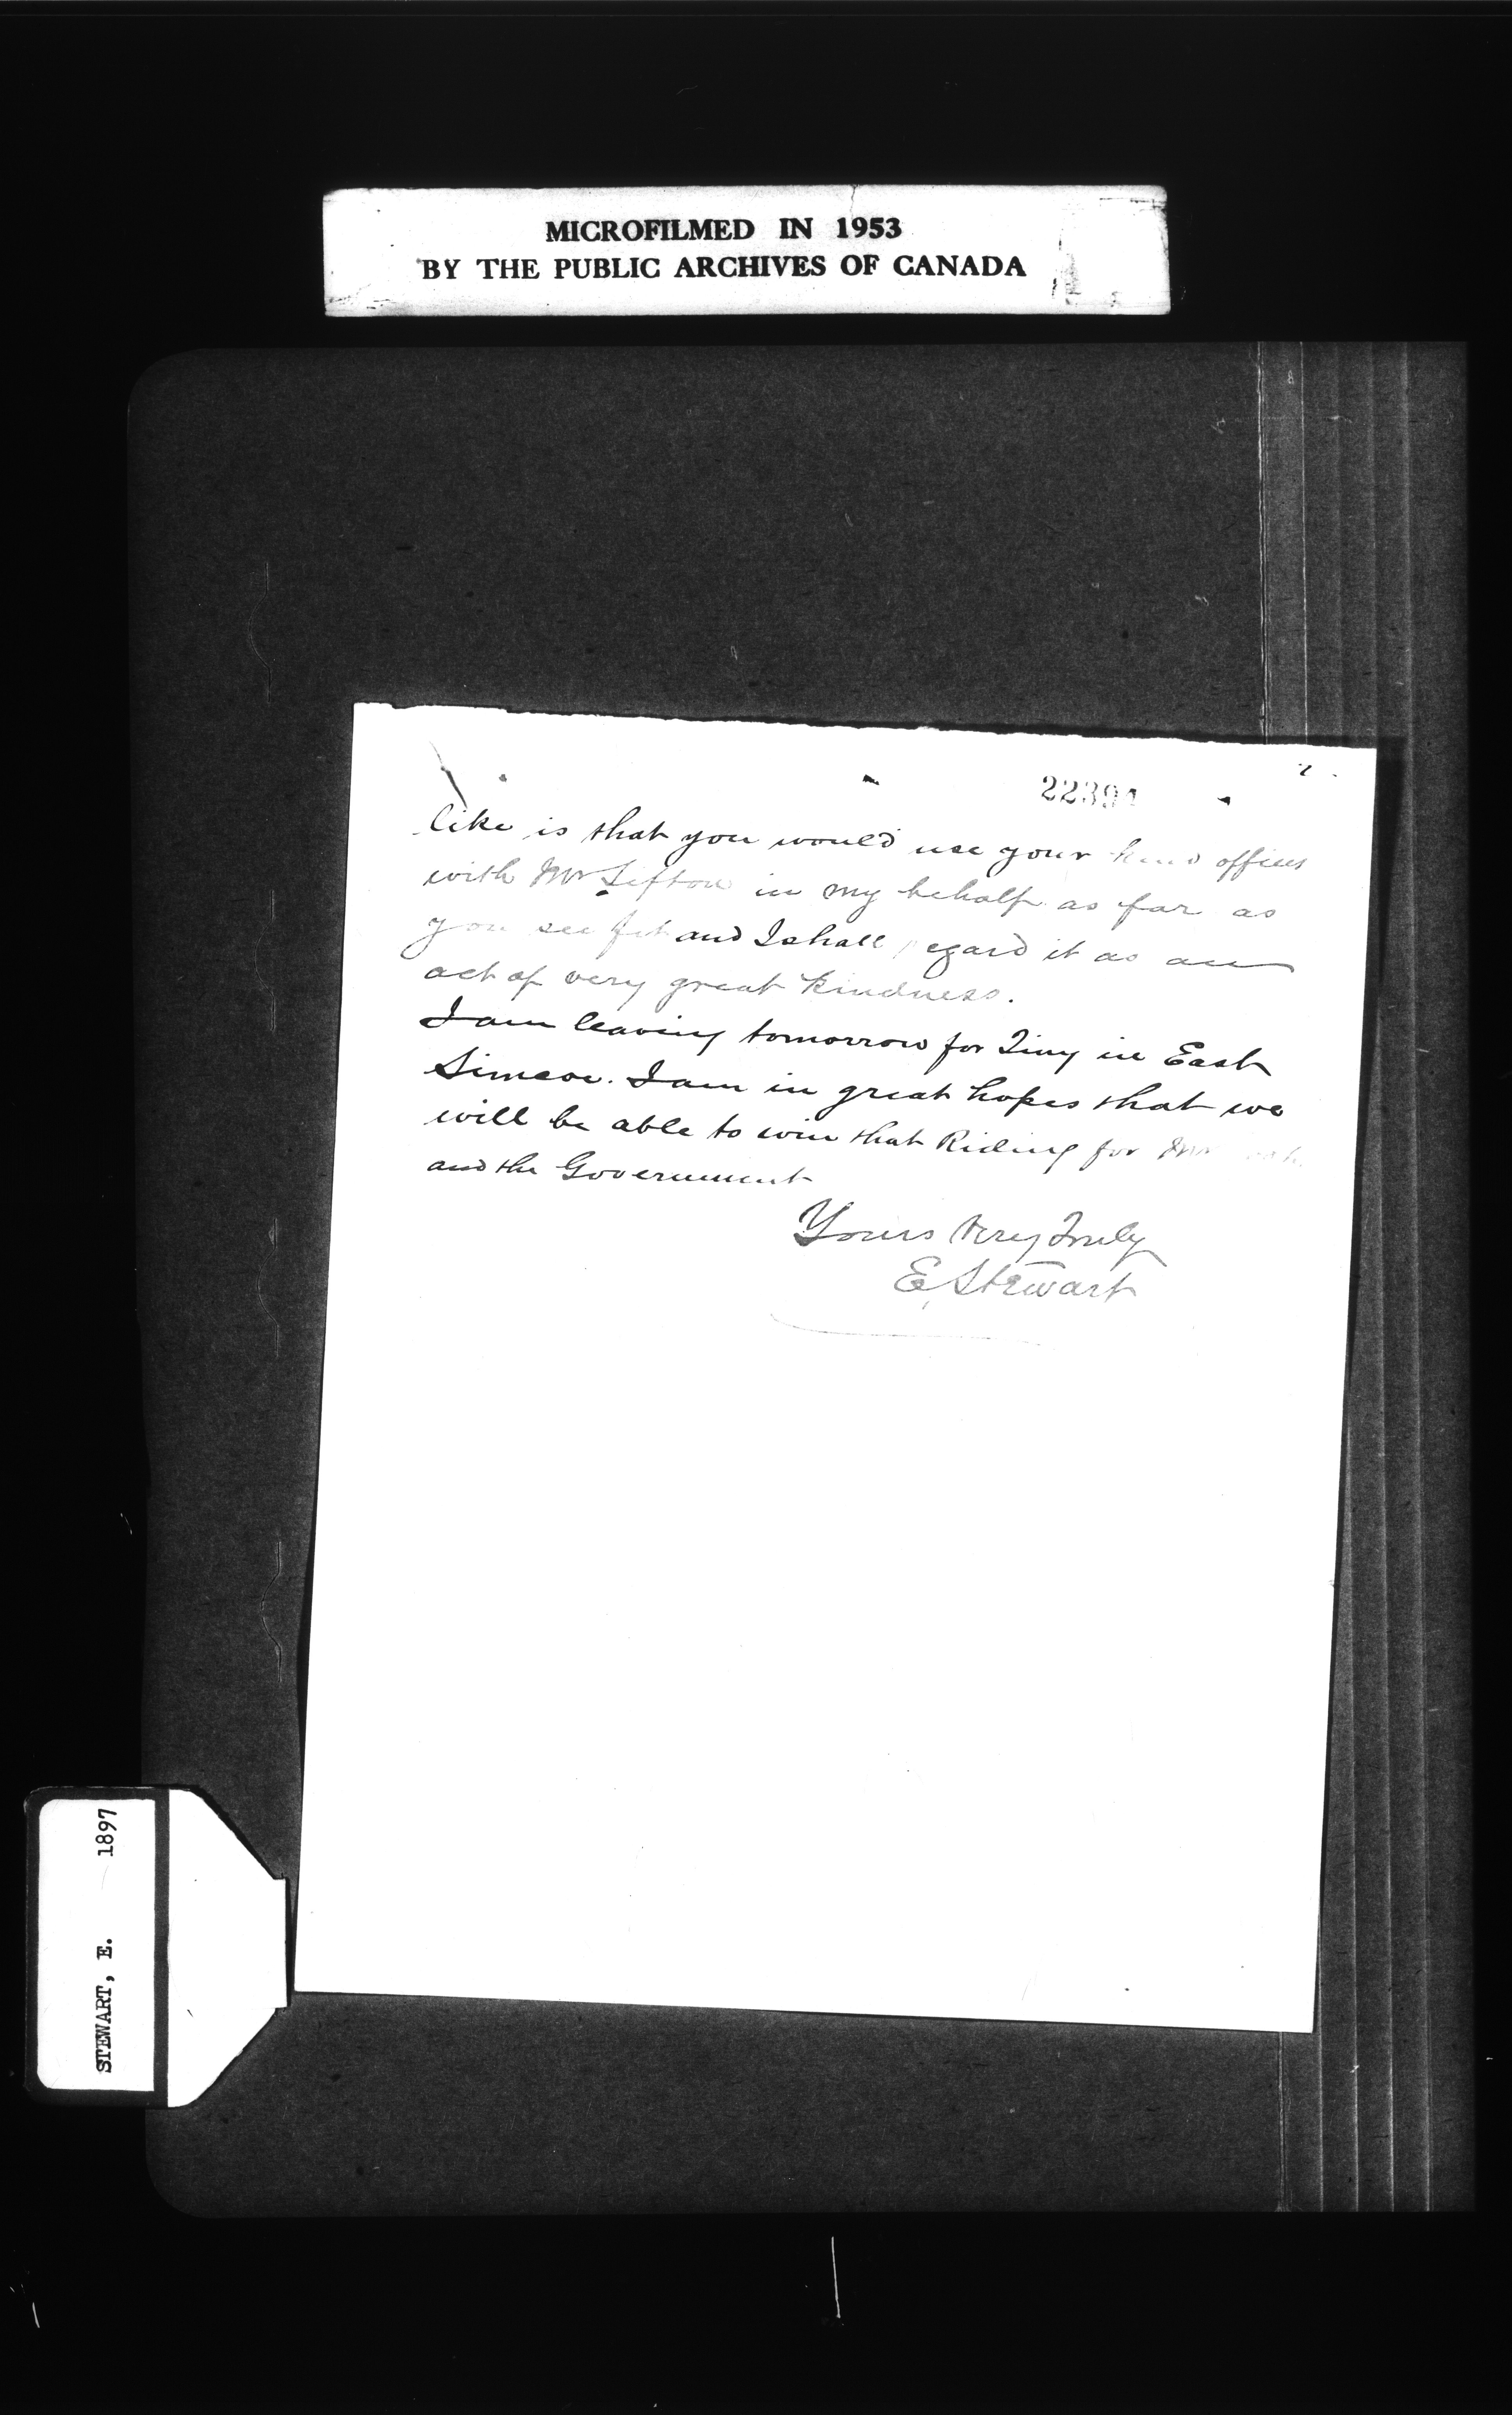 MICROFILMED IN 1953
BY THE PUBLIC ARCHIVES OF CANADA
22394
like is that you would use your kind offices
with Mr Sifton in my behalf as far as
you see fit and I shall regard it as an
act of very great kindness.
I am leaving tomorrow for Tiny in East
Simcoe. I am in great hopes that we
will be able to win that Riding for Mr
and the Government
Yours Very Truly
E. Stewart
STEWART, E. 1897